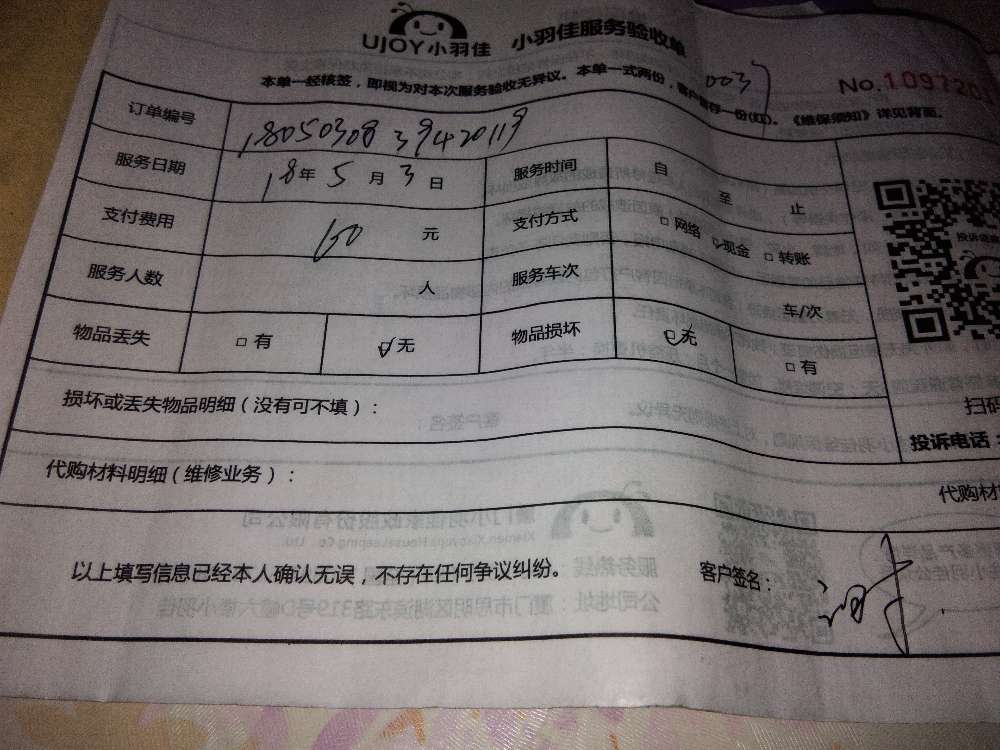 UJOY小羽佳 小羽佳服务验收单
0037
No.109720
本单一经核签，即视为对本次服务验收无异议。本单一式两份，客户留存一份(红)。《维保须知》详见背面。
订单编号 18050308 39420119
服务日期 18年5月3日 服务时间 自 至 止
支付费用 元 支付方式 □网络 ☑现金 □转账
服务人数 人 服务车次 车/次
物品丢失 □有 ☑无 物品损坏 ☑无 □有
损坏或丢失物品明细(没有可不填)：
扫码
投诉电话：
代购材料明细(维修业务)：
代购材
以上填写信息已经本人确认无误，不存在任何争议纠纷。 客户签名：